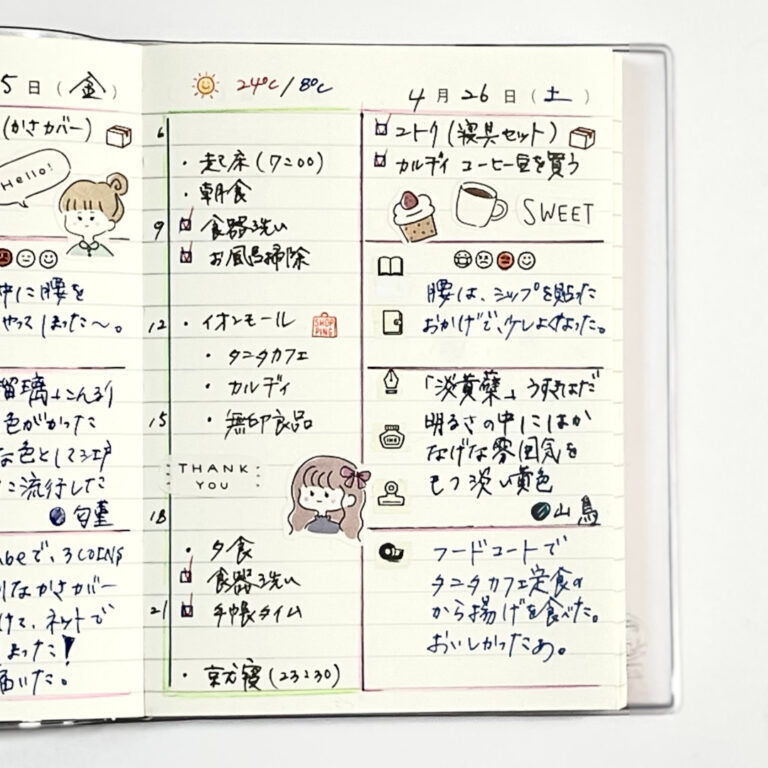 5日(金)
(かさカバー)
Hello!
中に腰を
やってしまった〜。
瑠璃
色がかった
な色として江戸
に流行した
匂菫
で、3COINS
かさカバー
ネットで
まった!
届いた。
24℃/8℃
6
・起床(7:00)
・朝食
9
食器洗い
お風呂掃除
12
・イオンモール
SHOPPING
・タニタカフェ
・カルディ
15
・無印良品
THANK
YOU
18
・夕食
食器洗い
21
手帳タイム
・就寝(23:30)
4月26日(土)
ニトリ(寝具セット)
カルディ コーヒー豆を買う
SWEET
腰は、シップを貼った
おかげで、少しよくなった。
「淡黄蘗」うすきはだ
明るさの中にはか
なげな雰囲気を
もつ淡い黄色
INK
山鳥
フードコートで
タニタカフェ定食の
から揚げを食べた。
おいしかったぁ。